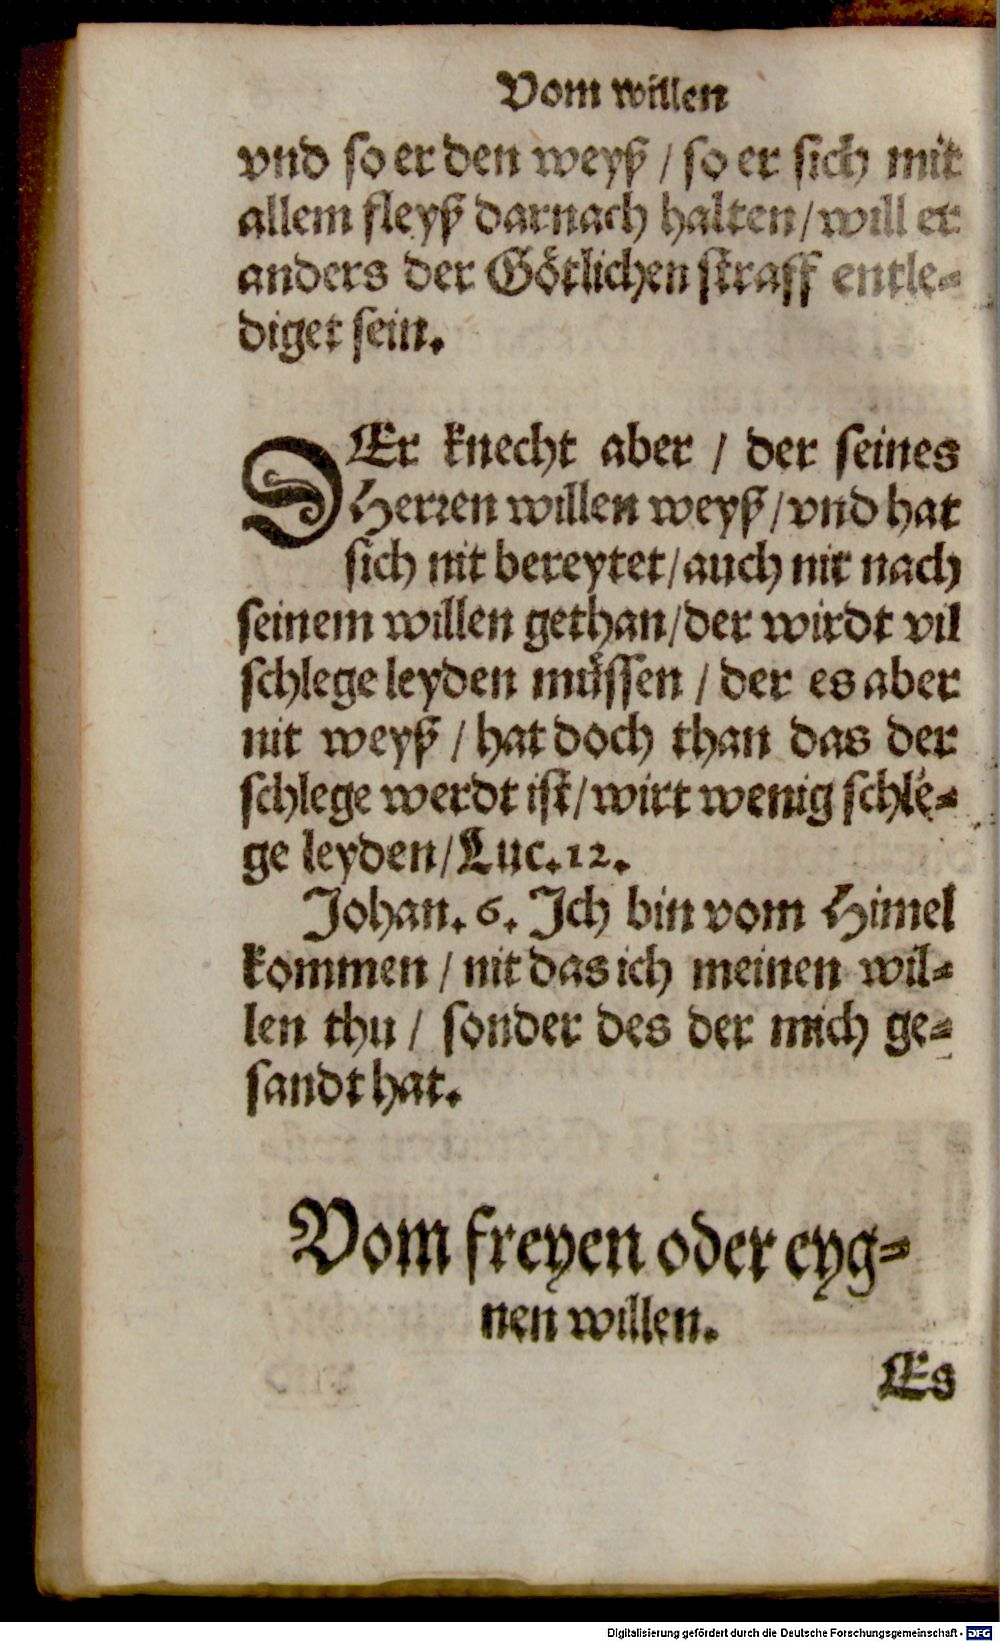 Vom willen
vnd so er den weyß / so er sich mit
allem fleyß darnach halten / will er
anders der Götlichen straff entle=
diget sein.
DEr knecht aber / der seines
Herren willen weyß / vnd hat
sich nit bereytet / auch nit nach
seinem willen gethan / der wirdt vil
schlege leyden müssen / der es aber
nit weyß / hat doch than das der
schlege werdt ist / wirt wenig schle=
ge leyden / Luc. 12.
Johan. 6. Ich bin vom Himel
kommen / nit das ich meinen wil=
len thu / sonder des der mich ge=
sandt hat.
Vom freyen oder eyg=
nen willen.
Es
Digitalisierung gefördert durch die Deutsche Forschungsgemeinschaft - DFG